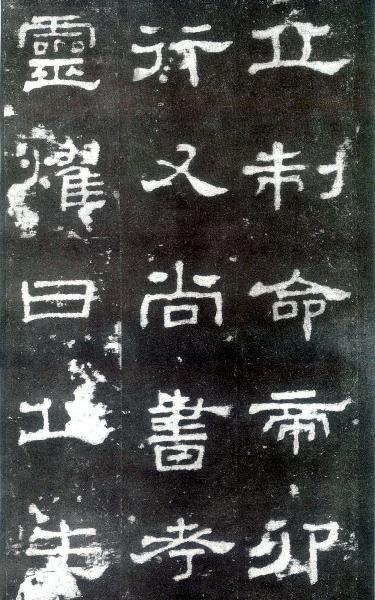 丘制命帝卯
行又尚書考
靈燿曰丘生